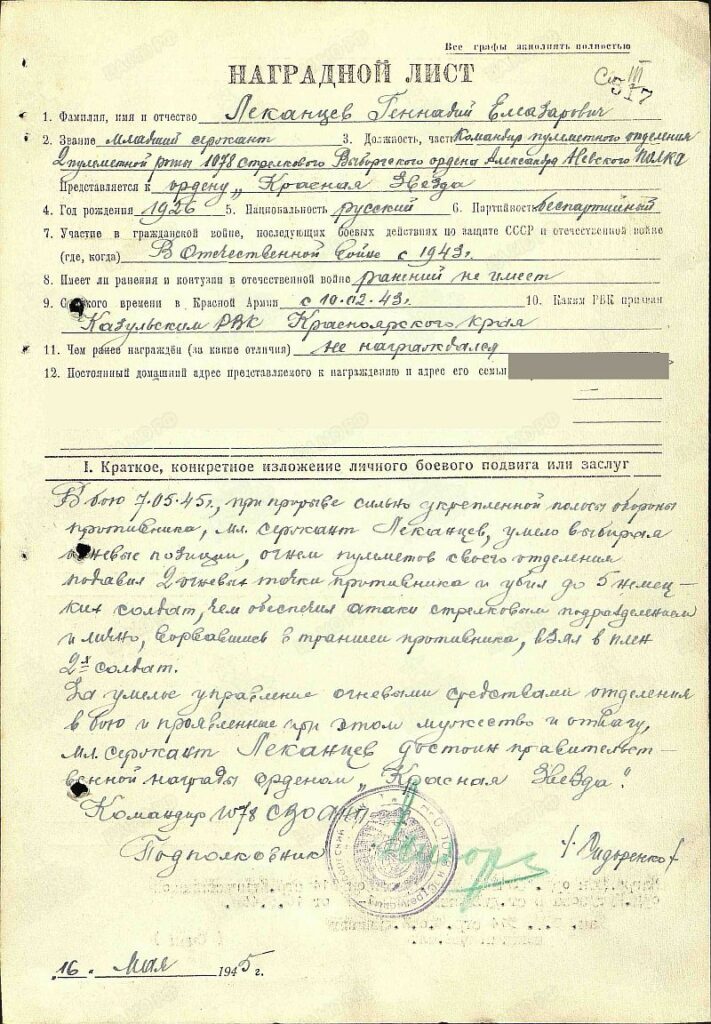 Все графы заполнять полностью
НАГРАДНОЙ ЛИСТ
III
1. Фамилия, имя и отчество Леканцев Геннадий Елеазарович
2. Звание младший сержант 3. Должность, часть Командир пулеметного отделения
2 пулеметной роты 1078 стрелкового Выборгского ордена Александра Невского полка
Представляется к ордену „Красная Звезда
4. Год рождения 1926 5. Национальность русский 6. Партийность беспартийный
7. Участие в гражданской войне, последующих боевых действиях по защите СССР и отечественной войне
(где, когда) В Отечественной войне с 1943г.
8. Имеет ли ранения и контузии в отечественной войне ранений не имеет
9. С какого времени в Красной Армии с 10.02.43г. 10. Каким РВК призван
Казульским РВК Красноярского края
11. Чем ранее награждён (за какие отличия) не награждался
12. Постоянный домашний адрес представляемого к награждению и адрес его семьи
I. Краткое, конкретное изложение личного боевого подвига или заслуг
В бою 7.05.45г., при прорыве сильно укрепленной полосы обороны
противника, мл. сержант Леканцев, умело выбирая
огневые позиции, огнем пулеметов своего отделения
подавил 2 огневых точки противника и убил до 5 немец-
ких солдат, чем обеспечил атаки стрелковым подразделением
и лично, ворвавшись в траншеи противника, взял в плен
2х солдат.
За умелое управление огневыми средствами отделения
в бою и проявленные при этом мужество и отвагу,
мл. сержант Леканцев достоин правительст-
венной награды орденом „Красная Звезда".
Командир 1078 СВОАНП
Подполковник /Сидоренко/
16. Мая 1945 г.